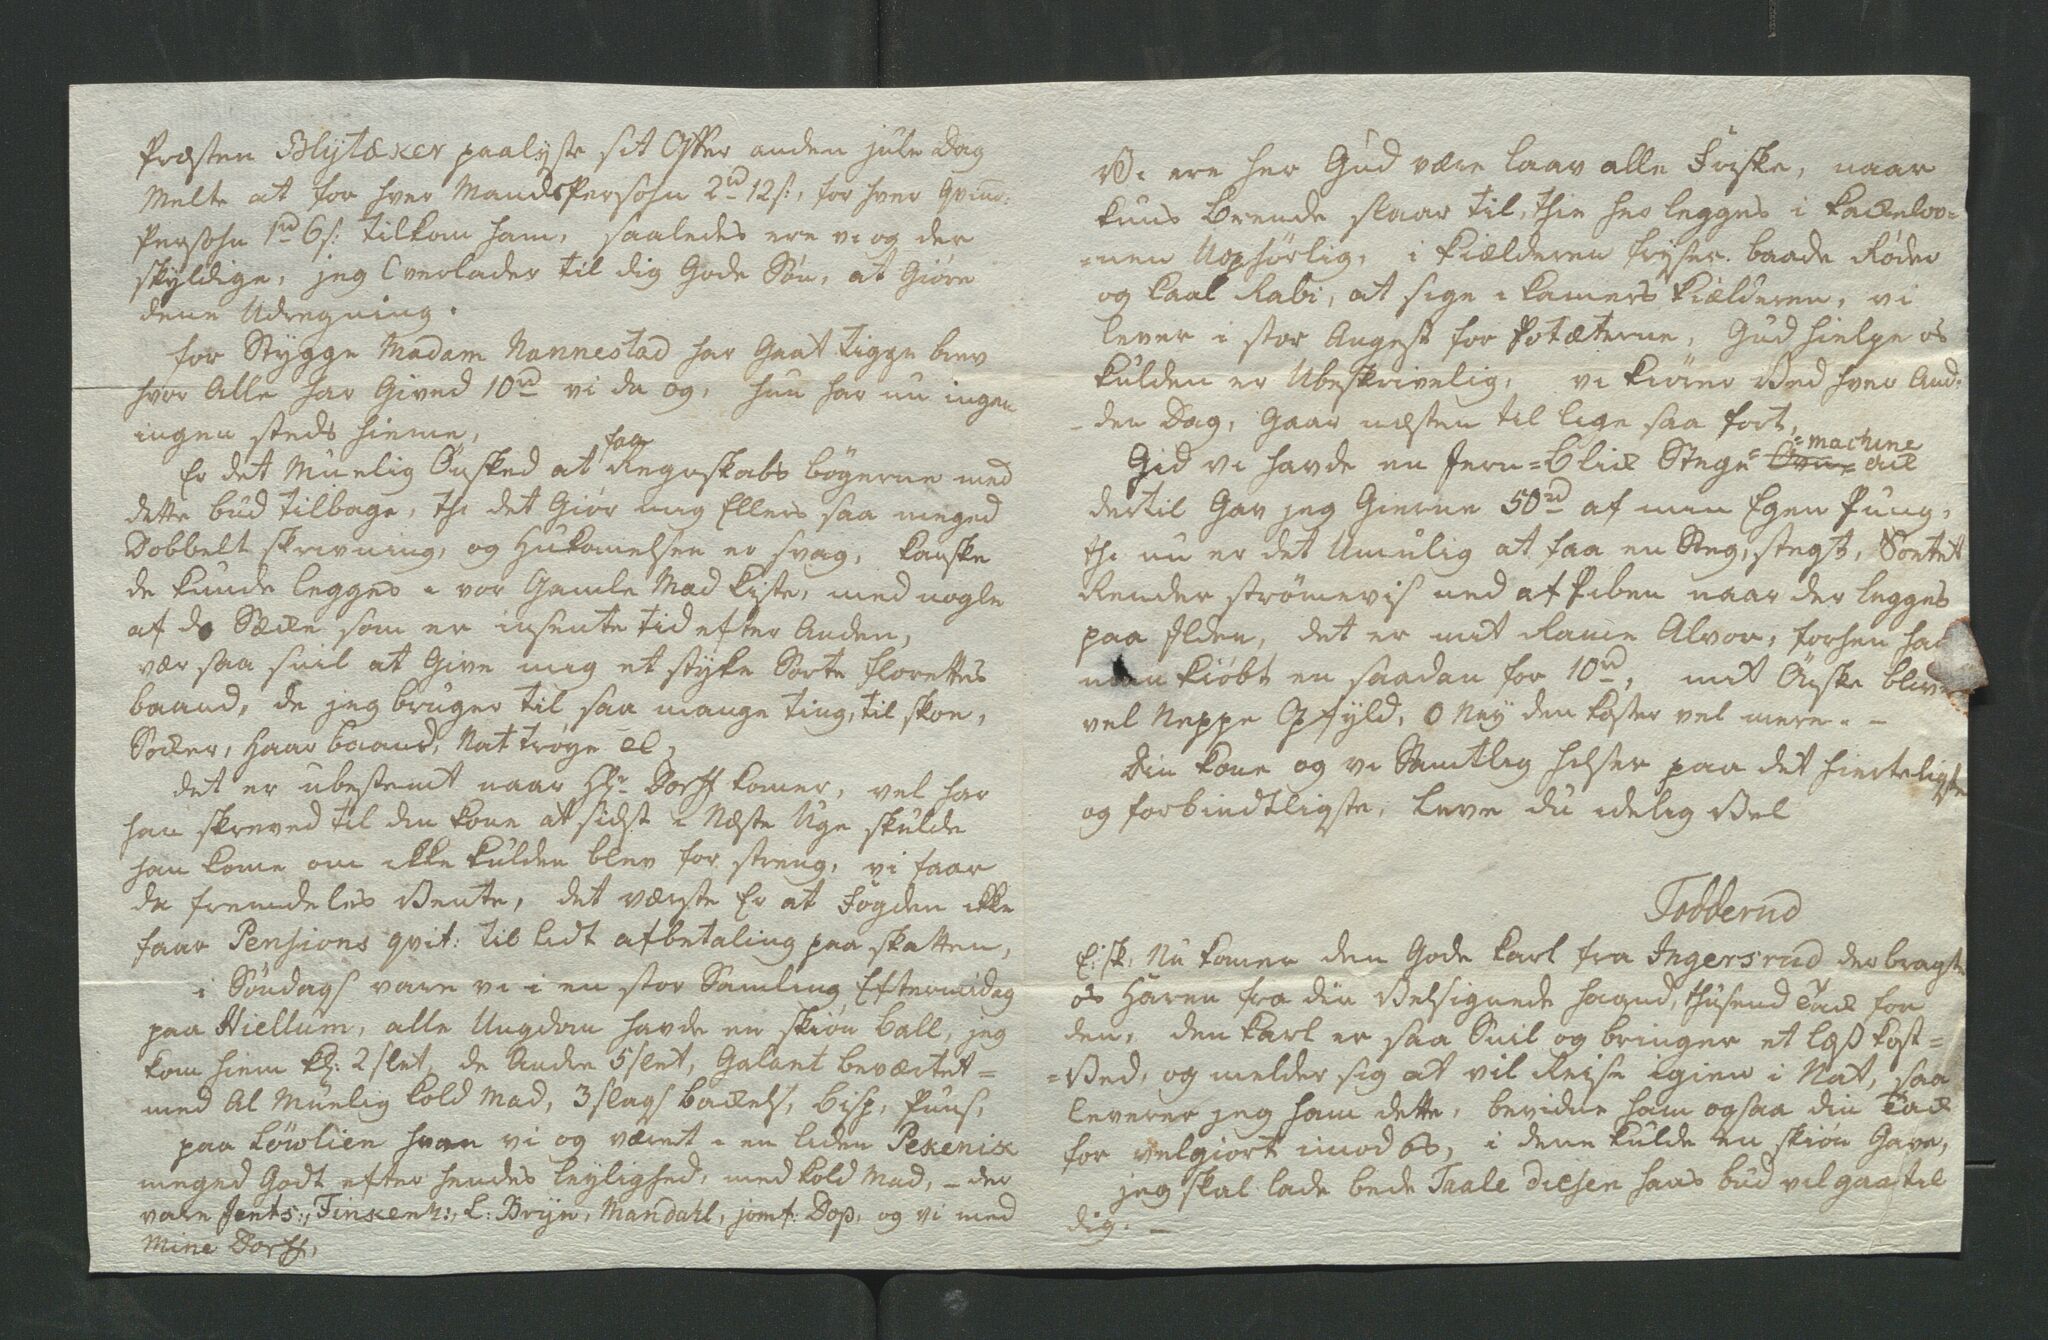 Præsten Blytæker paalyste sit Offer anden jule Dag
Melte at for hver MandsPersohn 2rd 12s:, for hver Qvinde:
Persohn 1rd 6s: tilkom ham, saaledes ere vi og der
skyldige, jeg Overlader til dig Gode Søn, at Giøre
dene Udregning.
for Stygge Madam Nannestad har Gaat tigge brev
hvor Alle har Gived 10rd vi da og, hun har nu ingen
ingen steds hieme,
Er det Muelig Önsked at faa Regnskabs bøgerne med
dette bud tilbage, thi det Giør mig Ellers saa meged
Dobbelt skrivning, og Hukomelsen er svag, kanske
de kunde legges i vor Gamle Mad kiste, med nogle
af de Sække som er insente tid efter Anden,
vær saa snil at Give mig et styke Sorte florettes
baand, de jeg bruger til saa mange ting, til skoe,
Sokker, Haar baand, Nat trøye etc,
det er ubestemt naar Hr: Dorff komer, vel har
han skreved til din kone at sidst i Næste Uge skulde
han kome om ikke kulden blev for streng, vi faar
da fremdeles Vente, det værste Er at Fogden ikke
faar Pensions qvit: til lidt afbetaling paa skatten,
i Søndags vare vi i en stor Samling Eftermidag
paa Hiellum, alle Ungdom havde en skiøn ball, jeg
kom hiem kl: 2 slet, de Andre 5 slet, Galant beværtet=
med Al Muelig kold Mad, 3 slags backels, bisp, Puns,
paa Löwlien hvor vi og været i en liden Pekenik
meged Godt efter hendes leylighed, med kold Mad, – der
vare Jents:, Finkenh:, L: Bryn, Mandahl, jomf: Doß, og vi med
Mine Dorff,
Vi ere her Gud være laav alle Friske, naar
kuns brende slaar til, thie her legges i kackelov=
=nen Uophörlig, i kielderen fryser baade Røder
og kaal Rabi, at sige i kamers kielderen, vi
lever i stor Angest for Potæterne, Gud hielpe os
kulden er Ubeskrivelig, vi kiører Ved hver And=
=den Dag, Gaar næsten til lige saa fort,
Gid vi havde en Jern=blick Stege= =machine
dertil Gav jeg Gierne 50rd af min Egen Pung,
thi nu er det Umulig at faa en Steg, stegt, Sodet
Render strømevis ned af Piben naar der legges
paa Ilden, det er mit Rame Alvor, forhen har
man kiöbt en saadan for 10rd, mit Önske bliver
vel Neppe Opfyld, O Ney den koster vel mere. –
Din kone og vi Samtlig hilser paa det hierteligste
og forbindtligste, Leve du idelig Vel
Todderud
E: sk: Nu komer den Gode karl fra Ingersrud der bragte
os Haren fra din Velsignede haand, thusend Tack for
den, den karl er saa Snil og bringer et læß kost=
=Ved, og melder sig at vil Reise igien i Nat, saa
leverer jeg ham dette, bevidne ham ogsaa din Tack
for velgiort imod os, i dene kulde en skiøn Gave,
jeg skal lade bede Taale Diesen hans bud vil gaa til
dig. –